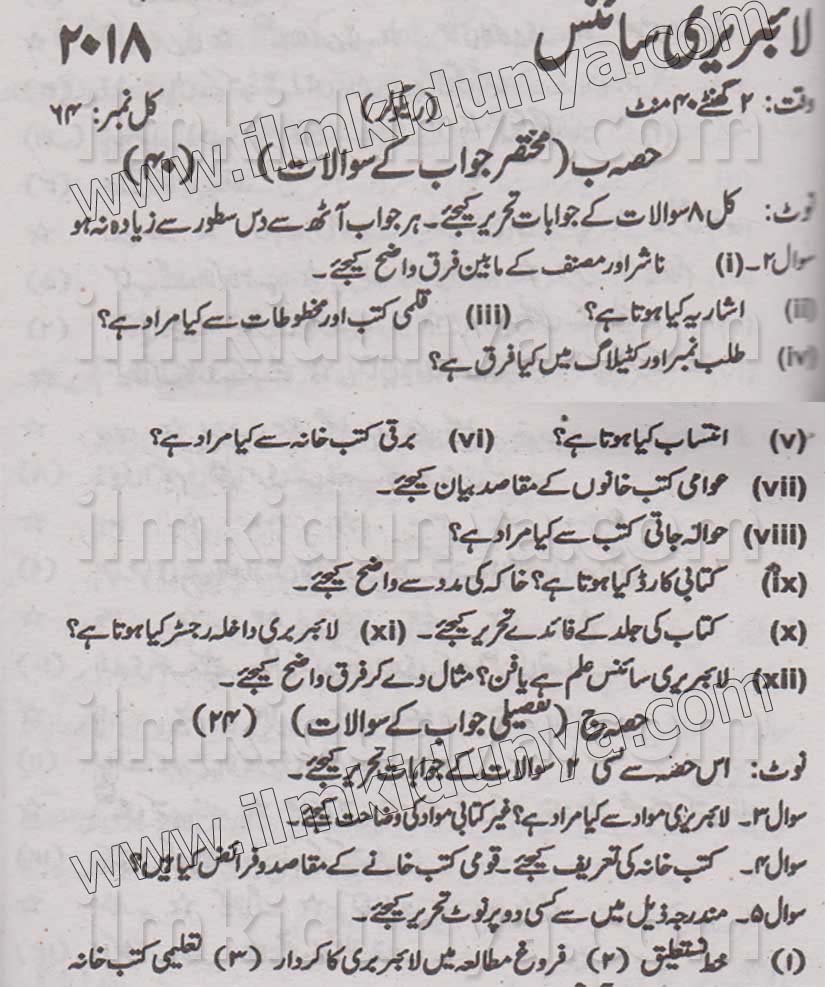 لائبریری سائنس ۲۰۱۸
وقت: ۲ گھنٹے ۴۰ منٹ (ریگولر) کل نمبر: ۶۴
حصہ ب (مختصر جواب کے سوالات) (۴۰)
نوٹ: کل ۸ سوالات کے جوابات تحریر کیجئے۔ ہر جواب آٹھ سے دس سطور سے زیادہ نہ ہو
سوال ۲۔ (i) ناشر اور مصنف کے مابین فرق واضح کیجئے۔
(ii) اشاریہ کیا ہوتا ہے؟ (iii) قلمی کتب اور مخطوطات سے کیا مراد ہے؟
(iv) طلب نمبر اور کٹیلاگ میں کیا فرق ہے؟
(v) انتساب کیا ہوتا ہے؟ (vi) برقی کتب خانہ سے کیا مراد ہے؟
(vii) عوامی کتب خانوں کے مقاصد بیان کیجئے۔
(viii) حوالہ جاتی کتب سے کیا مراد ہے؟
(ix) کتابی کارڈ کیا ہوتا ہے؟ خاکہ کی مدد سے واضح کیجئے۔
(x) کتاب کی جلد کے فائدے تحریر کیجئے۔ (xi) لائبریری داخلہ رجسٹر کیا ہوتا ہے؟
(xii) لائبریری سائنس علم ہے یا فن؟ مثال دے کر فرق واضح کیجئے۔
حصہ ج (تفصیلی جواب کے سوالات) (۲۴)
نوٹ: اس حصہ سے کسی ۲ سوالات کے جوابات تحریر کیجئے۔
سوال ۳۔ لائبریری مواد سے کیا مراد ہے؟ غیر کتابی مواد کی وضاحت کیجئے۔
سوال ۴۔ کتب خانہ کی تعریف کیجئے۔ قومی کتب خانے کے مقاصد و فرائض کیا ہیں؟
سوال ۵۔ مندرجہ ذیل میں سے کسی دو پر نوٹ تحریر کیجئے۔
(۱) خط نستعلیق (۲) فروغ مطالعہ میں لائبریری کا کردار (۳) تعلیمی کتب خانہ
www.ilmkidunya.com
ilmkidunya.com
ilmkidunya.com
ilmkidunya.com
ilmkidunya.com
www.ilmkidunya.com
ilmkidunya.com
ilmkidunya.com